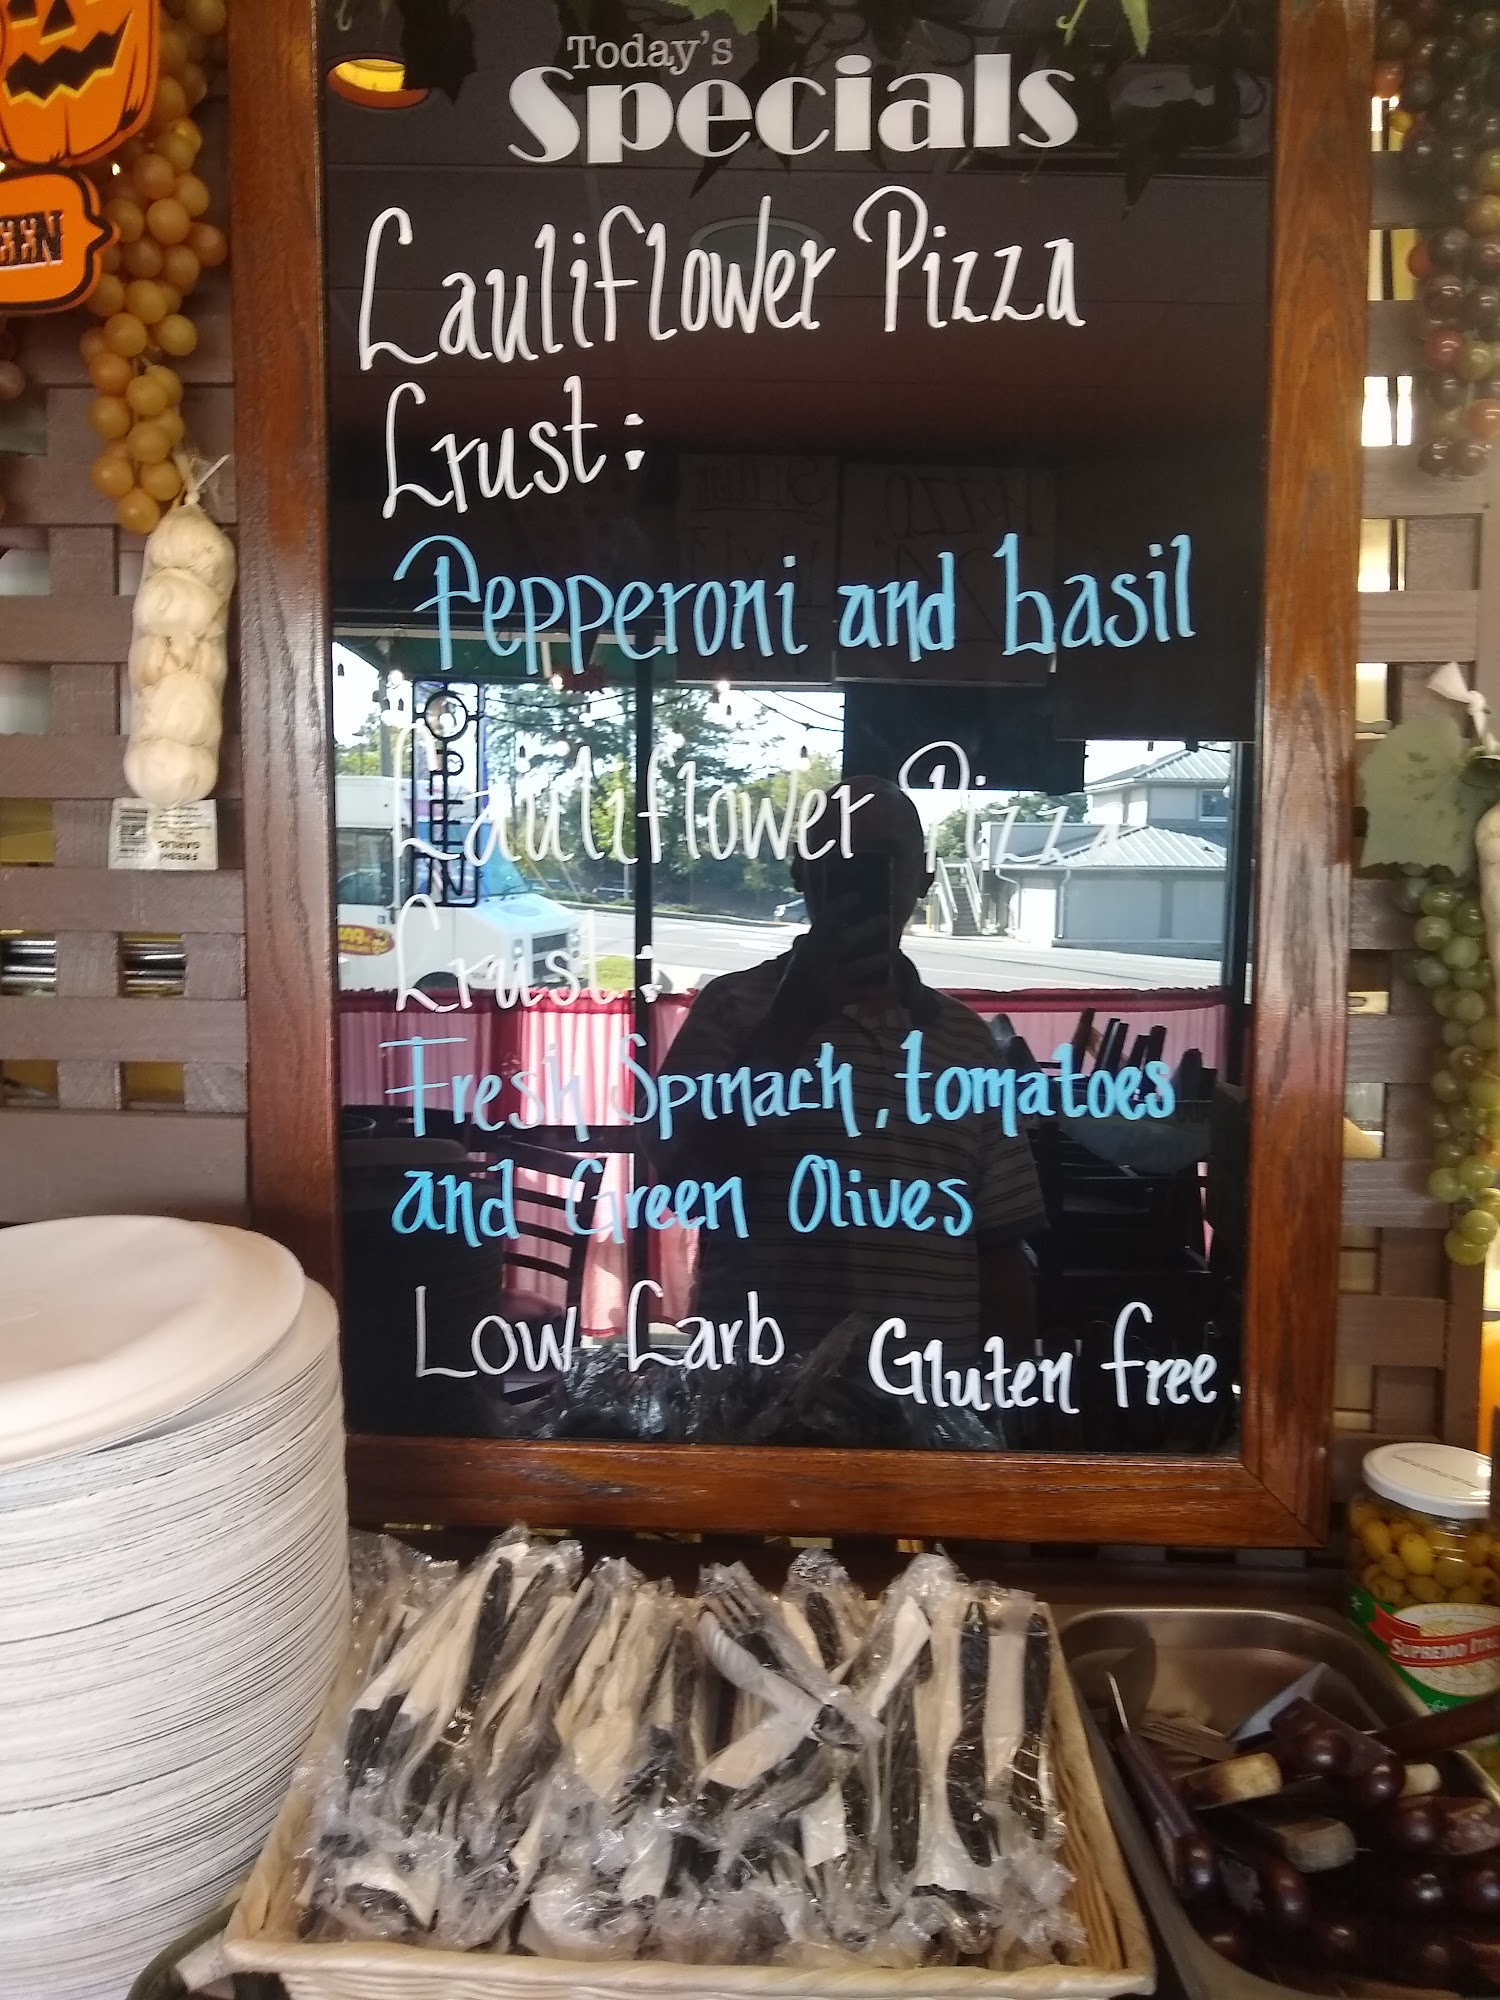 Today's
Specials
Cauliflower Pizza
Crust:
Pepperoni and basil
Cauliflower Pizza
Crust:
Fresh Spinach, tomatoes
and Green Olives
Low Carb Gluten free
EEN
OPEN
FRESH
GARLIC
SUPREMO ITAL